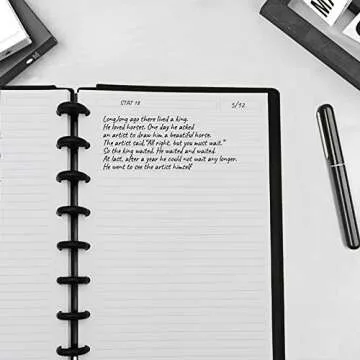 STAT 18
5/12
Long,long ago there lived a king.
He loved horses. One day he asked
an artist to draw him a beautiful horse.
The artist said,"All right, but you must wait."
So the king waited. He waited and waited.
At last, after a year he could not wait any longer.
He went to see the artist himself